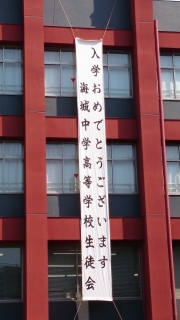 入学おめでとうございます
海城中学高等学校生徒会